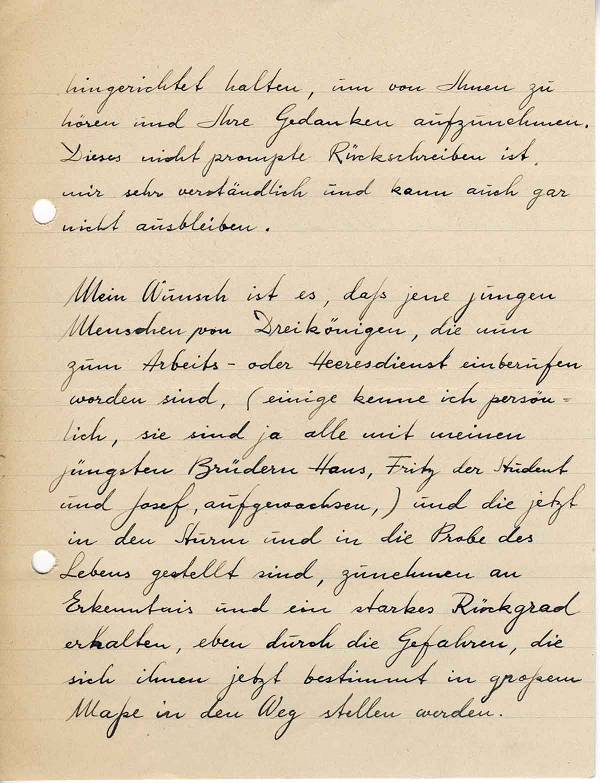 hingerichtet halten, um von Ihnen zu
hören und Ihre Gedanken aufzunehmen.
Dieses nicht prompte Rückschreiben ist
mir sehr verständlich und kann auch gar
nicht ausbleiben.
Mein Wunsch ist es, daß jene jungen
Menschen von Dreikönigen, die nun
zum Arbeits- oder Heeresdienst einberufen
worden sind, (einige kenne ich persön=
lich, sie sind ja alle mit meinen
jüngsten Brüdern Hans, Fritz der Student
und Josef, aufgewachsen,) und die jetzt
in den Sturm und in die Probe des
Lebens gestellt sind, zunehmen an
Erkenntnis und ein starkes Rückgrad
erhalten, eben durch die Gefahren, die
sich ihnen jetzt bestimmt in großem
Maße in den Weg stellen werden.